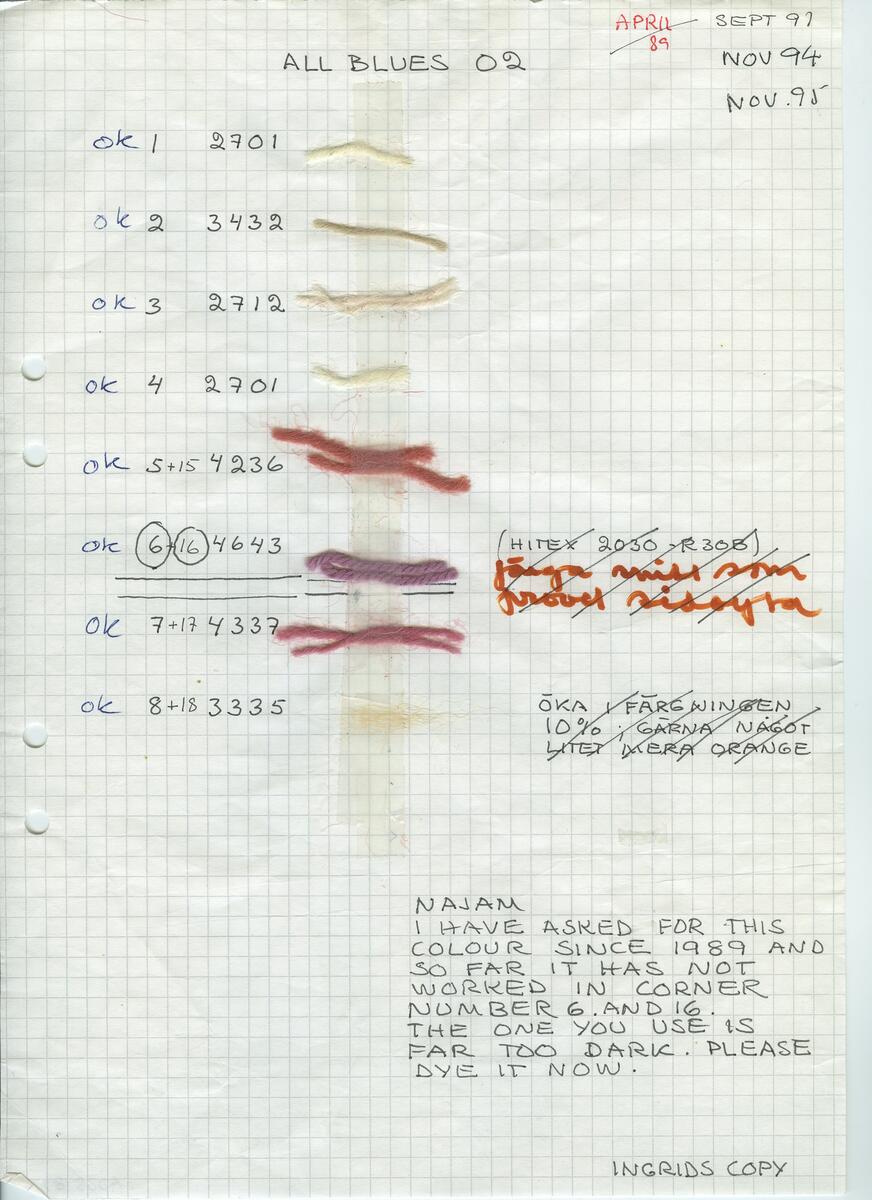 APRIL SEPT 91
89
ALL BLUES 02
NOV 94
NOV. 95
ok 1 2701
ok 2 3432
ok 3 2712
ok 4 2701
ok 5+15 4236
ok 6+16 4643 (HITEX 2030-R30B)
färga mitt som
provet sidoyta
ok 7+17 4337
ok 8+18 3335
ÖKA I FÄRGNINGEN
10% . GÄRNA NÅGOT
LITET MERA ORANGE
NAJAM
I HAVE ASKED FOR THIS
COLOUR SINCE 1989 AND
SO FAR IT HAS NOT
WORKED IN CORNER
NUMBER 6. AND 16.
THE ONE YOU USE IS
FAR TOO DARK. PLEASE
DYE IT NOW.
INGRIDS COPY